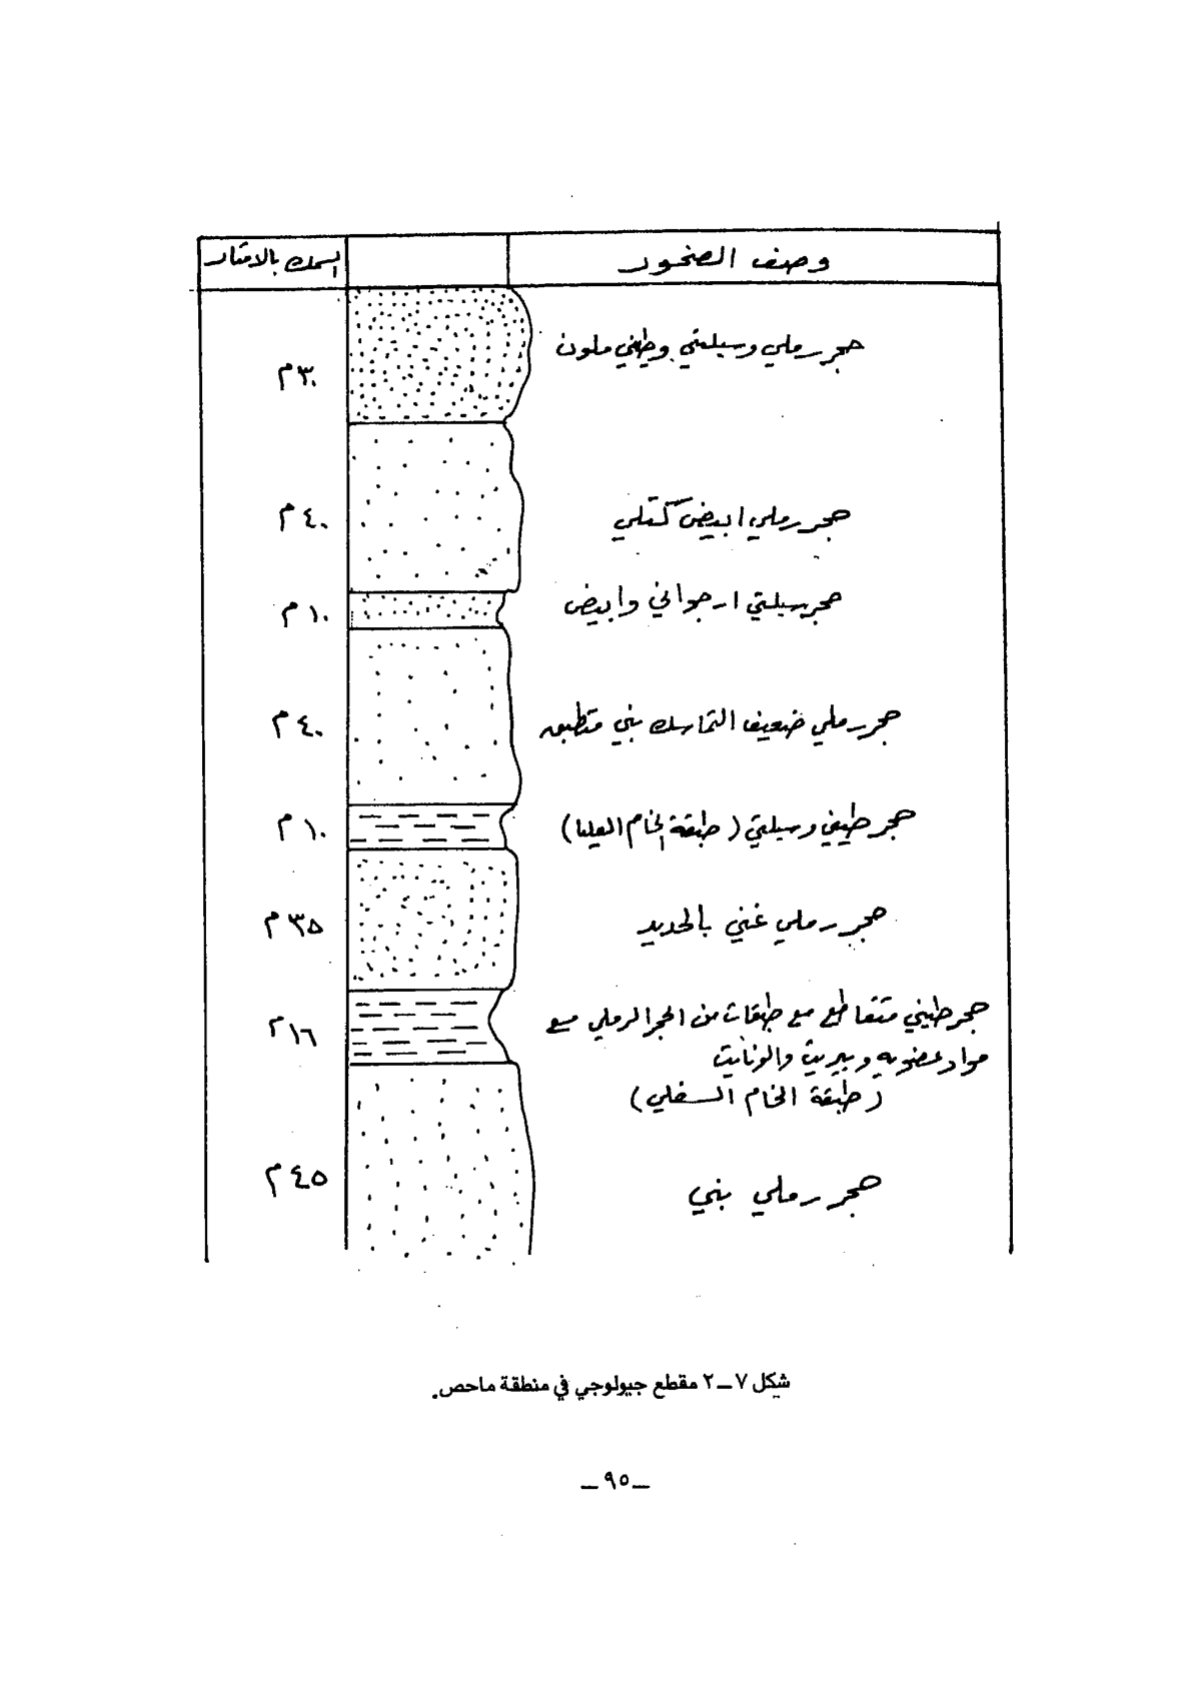 وصف الصخور
السمك بالامتار
حجر رملي وسيلتي وطيني ملون
٣٠م
حجر رملي ابيض كتلي
٤٠م
حجر سيلتي ارجواني وابيض
١٠م
حجر رملي ضعيف التماسك بني متطبق
٤٠م
حجر طيني وسيلتي (طبقة الخام العليا)
١٠م
حجر رملي غني بالحديد
٣٥م
حجر طيني متقاطع مع طبقات من الحجر الرملي مع
مواد عضويه وبيريت
(طبقة الخام السفلي)
١٦م
حجر رملي بني
٤٥م
شكل ٧ــ٢ مقطع جيولوجي في منطقة ماحص.
ــ ٩٥ ــ